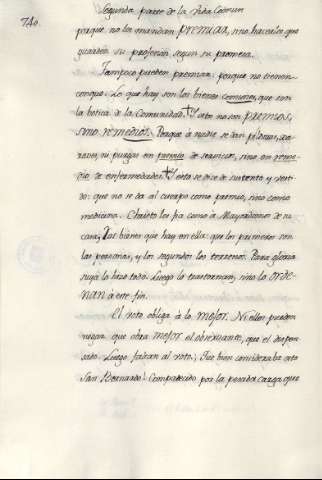 Segunda parte de la Vida Comun
740
porque no los mandan PREMIAR, sino hacerles que
guarden su profesión segun su promesa.
Tampoco pueden premiar: porque no tienen
conque. Lo que hay son los bienes comunes, que son
la botica de la Comunidad. Y esto no son PREMIOS,
sino REMEDIOS. Porque à nadie se dan pildoras, xa-
raves, ni purgas en premio de servicios, sino en reme-
dio de enfermedades. Y esto se dice de sustento y vesti-
do: que no se da al cuerpo como premio, sino como
medicina. Christo los fia como à Mayordomos de su
casa, los bienes que hay en ella: que los primeros son
las personas, y los segundos los terrenos. Para gloria
suya lo hizo todo. Luego la trastornan, sino lo ORDE-
NAN à este fin.
El voto obliga à lo MEJOR. Ni ellos pueden
negar que obra MEJOR el observante, que el dispen-
sado. Luego faltan al voto. Que bien consideraba esto
San Bernardo! Compadecido por la pesada carga que